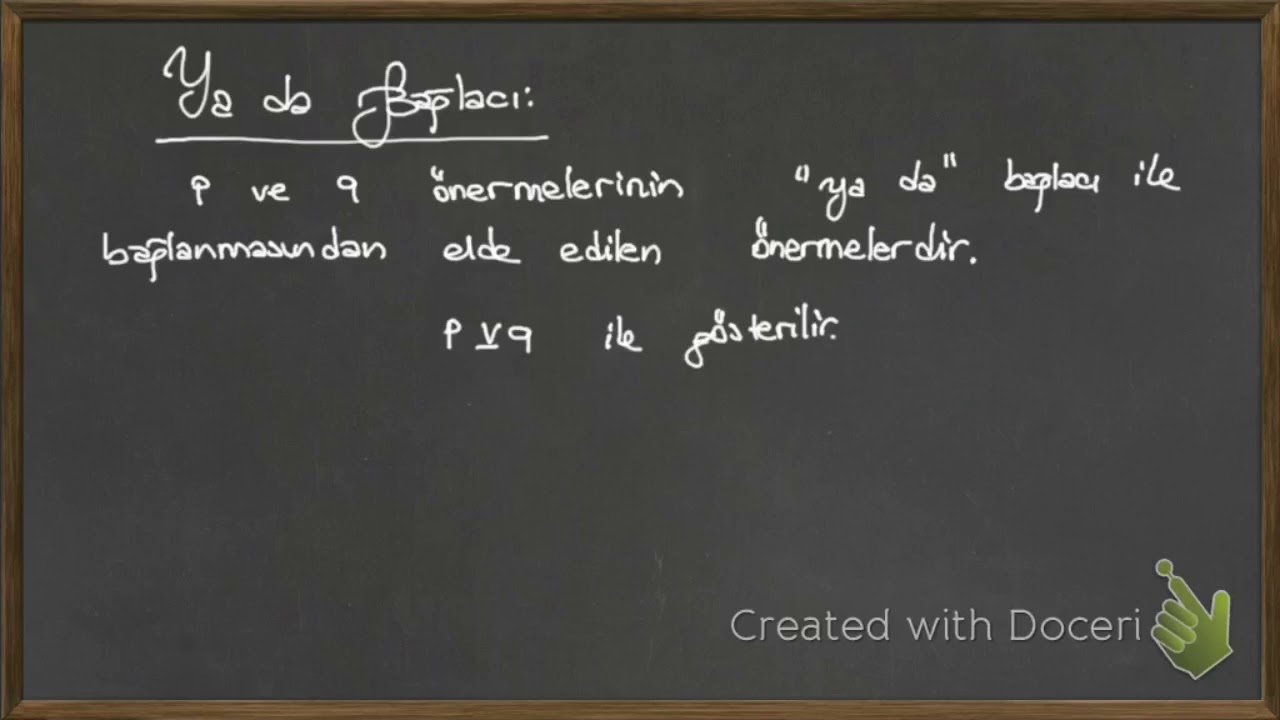 Ya da Bağlacı:
p ve q önermelerinin "ya da" bağlacı ile
bağlanmasından elde edilen önermelerdir.
p ⊻ q ile gösterilir.
Created with Doceri